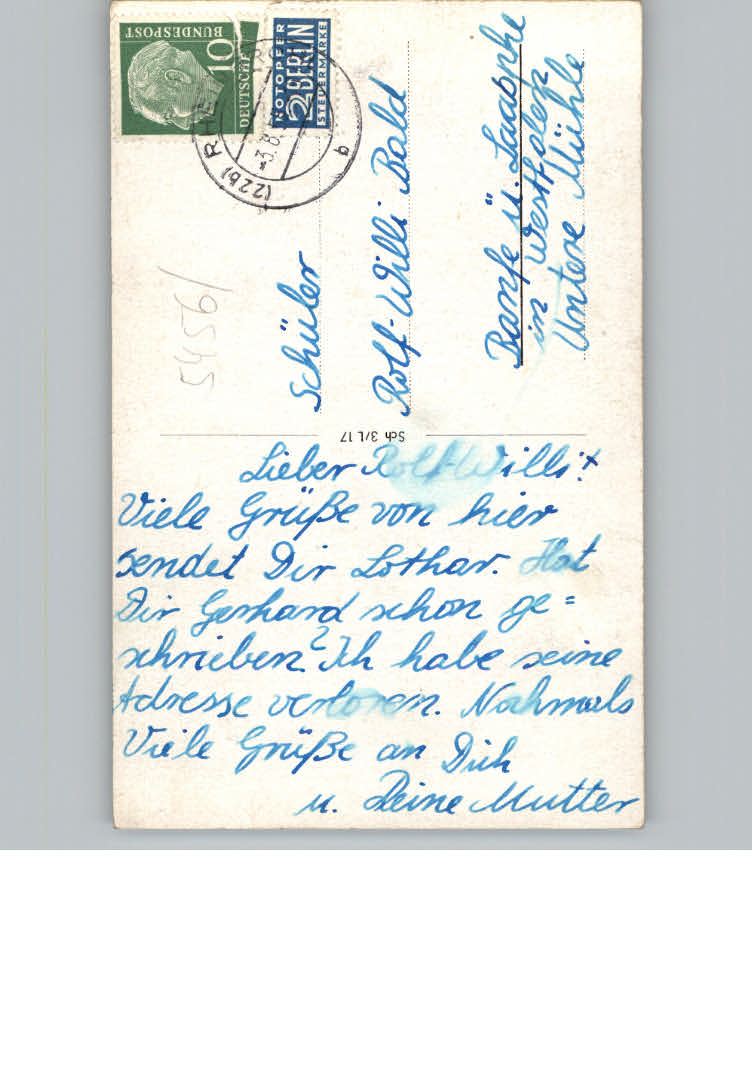 Lieber Rolf-Willi!
Viele Grüße von hier
sendet Dir Lothar. Hat
Dir Gerhard schon ge=
schrieben? Ich habe seine
Adresse verloren. Nochmals
Viele Grüße an Dich
u. Deine Mutter
Sch 3/L 17
Schüler
Rolf-Willi Bald
Banfe ü. Laasphe
in Westfalen
Untere Mühle
5456/
10
DEUTSCHE
BUNDESPOST
NOTOPFER
2 BERLIN
STEUERMARKE
(22b)
3.8.
b